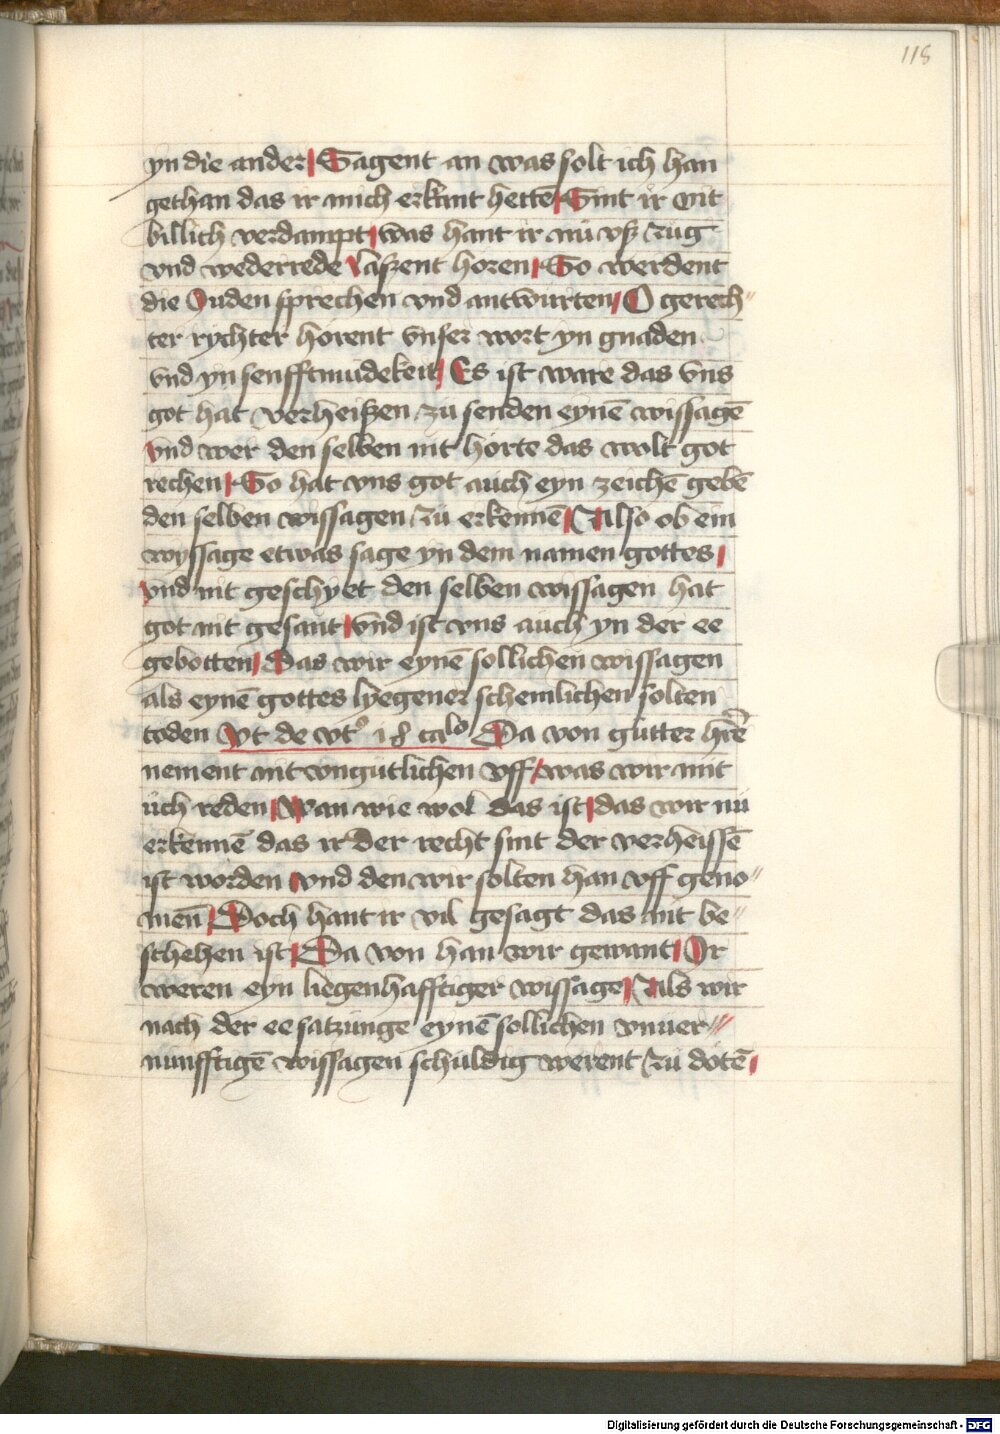 118
yn die ander Sagent an was solt ich han
gethan das ir mich erkant hettē Sint ir nit
billich verdampt was hant ir nü vß zug
vnd wederrede laßent horen So werdent
die Juden sprechen vnd antwürten O gerech〃
ter rychter horent vnser wort yn gnaden
vnd yn senfftmüdekeit Es ist ware das vns
got hat verheißen zü senden eynē wissagē
vnd wer den selben nit hörte das wolt got
rechen So hat vns got auch eyn zeichē gebē
den selben wissagen zü erkennē Also ob ein
wyssage etwas sage yn dem namen gottes
vnd nit geschyet den selben wissagen hat
got nit gesant vnd ist vns auch yn der ee
gebotten Das wir eynē sollichen wissagen
als eynē gottes lyegener scheinlichen solten
toden vt de vtº 18 caˡᵒ Da von gütter hr̄e
nement nit vngütlichen vff was wir mit
üch reden Wan wie wol das ist das wir nü
erkennē das ir der recht sint der verheissē
ist worden vnd den wir solten han vff geno〃
men̄ Doch hant ir vil gesagt das nit be〃
schehen ist Da von han wir gewant Ir
weren eyn liegenhafftiger wissage Als wir
nach der ee satzunge eynē sollichen vnuer〃
nünfftigē wissagen schuldig werent zü dötē
Digitalisierung gefördert durch die Deutsche Forschungsgemeinschaft - DFG